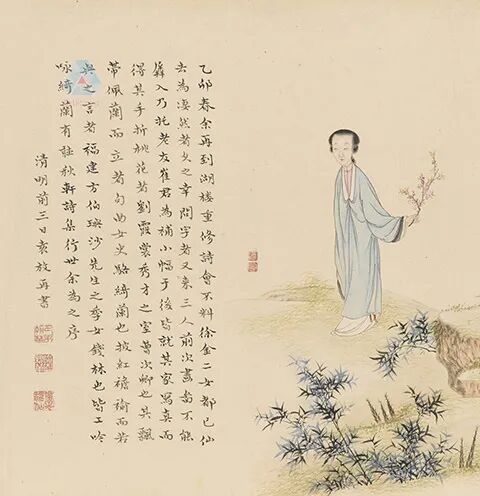 乙卯春余再到湖樓重修詩會不料徐金二女都已仙
去為凄然者久之幸問字者又來三人前次畫圖不能
羼入乃托老友崔君為補小幅于後皆就其家寫真而
得其手折桃花者劉霞裳秀才之室曹次卿也其飄
帶佩蘭而立者句曲女史駱綺蘭也披紅襜褕而若
與之言者福建方伯璵沙先生之季女錢林也皆工吟
咏綺蘭有聽秋軒詩集行世余為之序
清明前三日袁枚再書